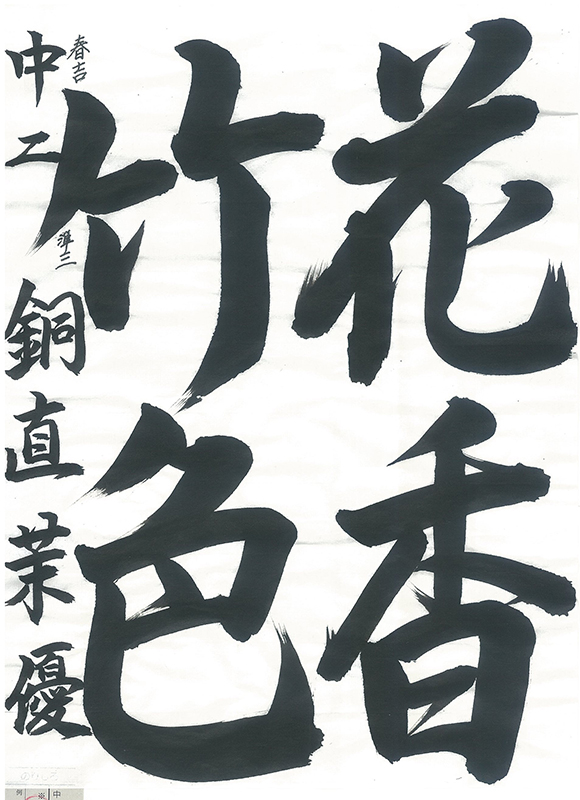 花香
竹色
春吉
中二
準三
銅直茉優
例
※
中